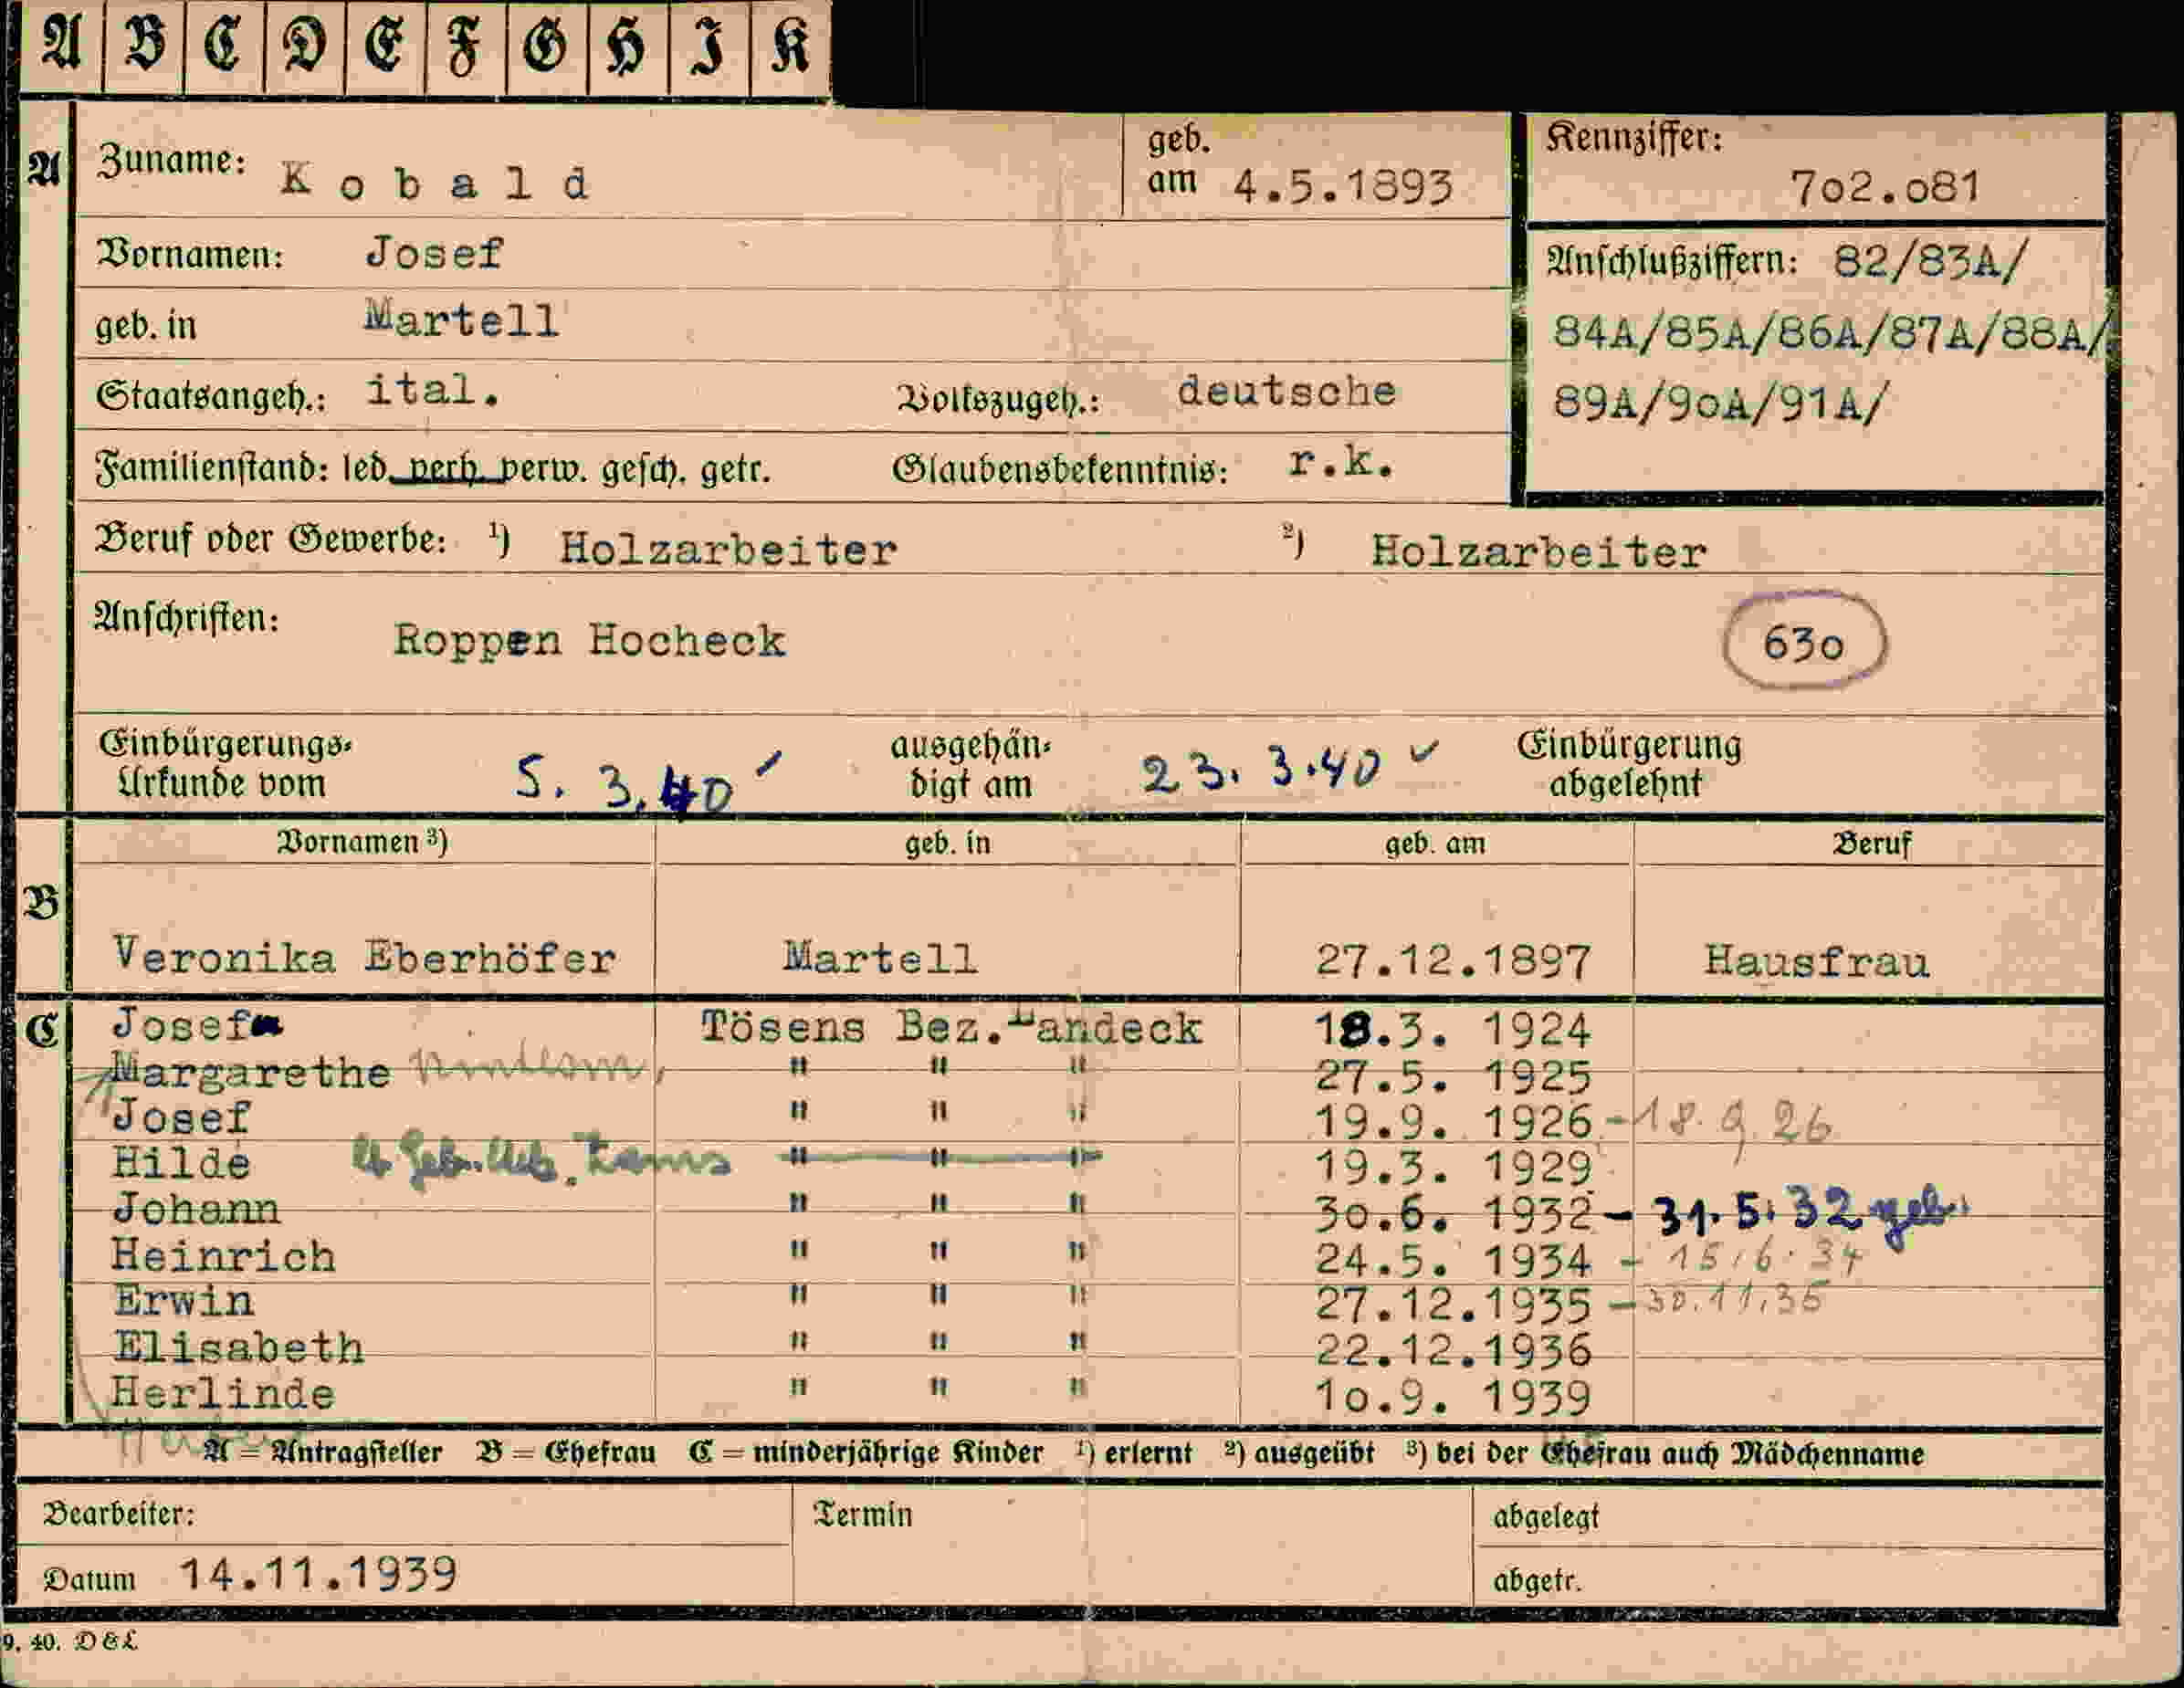 A B C D E F G H I K
A Zuname: Kobald geb. am 4.5.1893 Kennziffer: 702.081
Vornamen: Josef Anschlußziffern: 82/83A/
geb. in Martell 84A/85A/86A/87A/88A/
Staatsangeh.: ital. Volkszugeh.: deutsche 89A/90A/91A/
Familienstand: led. verh. verw. gesch. getr. Glaubensbekenntnis: r.k.
Beruf oder Gewerbe: 1) Holzarbeiter 2) Holzarbeiter
Anschriften: Roppen Hocheck 630
Einbürgerungs-Urkunde vom 5. 3. 40 ausgehän-digt am 23. 3. 40 Einbürgerung abgelehnt
Vornamen 3) geb. in geb. am Beruf
B
Veronika Eberhöfer Martell 27.12.1897 Hausfrau
C Josef Tösens Bez. Landeck 18.3. 1924
Margarethe " " " 27.5. 1925
Josef " " " 19.9. 1926 - 18. 9. 26
Hilde Zams " " " 19.3. 1929
Johann " " " 30.6. 1932 - 31. 5. 32 geb.
Heinrich " " " 24.5. 1934 - 15. 6. 34
Erwin " " " 27.12.1935 - 30. 11. 35
Elisabeth " " " 22.12.1936
Herlinde " " " 10.9. 1939
A = Antragsteller B = Ehefrau C = minderjährige Kinder 1) erlernt 2) ausgeübt 3) bei der Ehefrau auch Mädchenname
Bearbeiter: Termin abgelegt
Datum 14.11.1939 abgetr.
9. 40. D & L